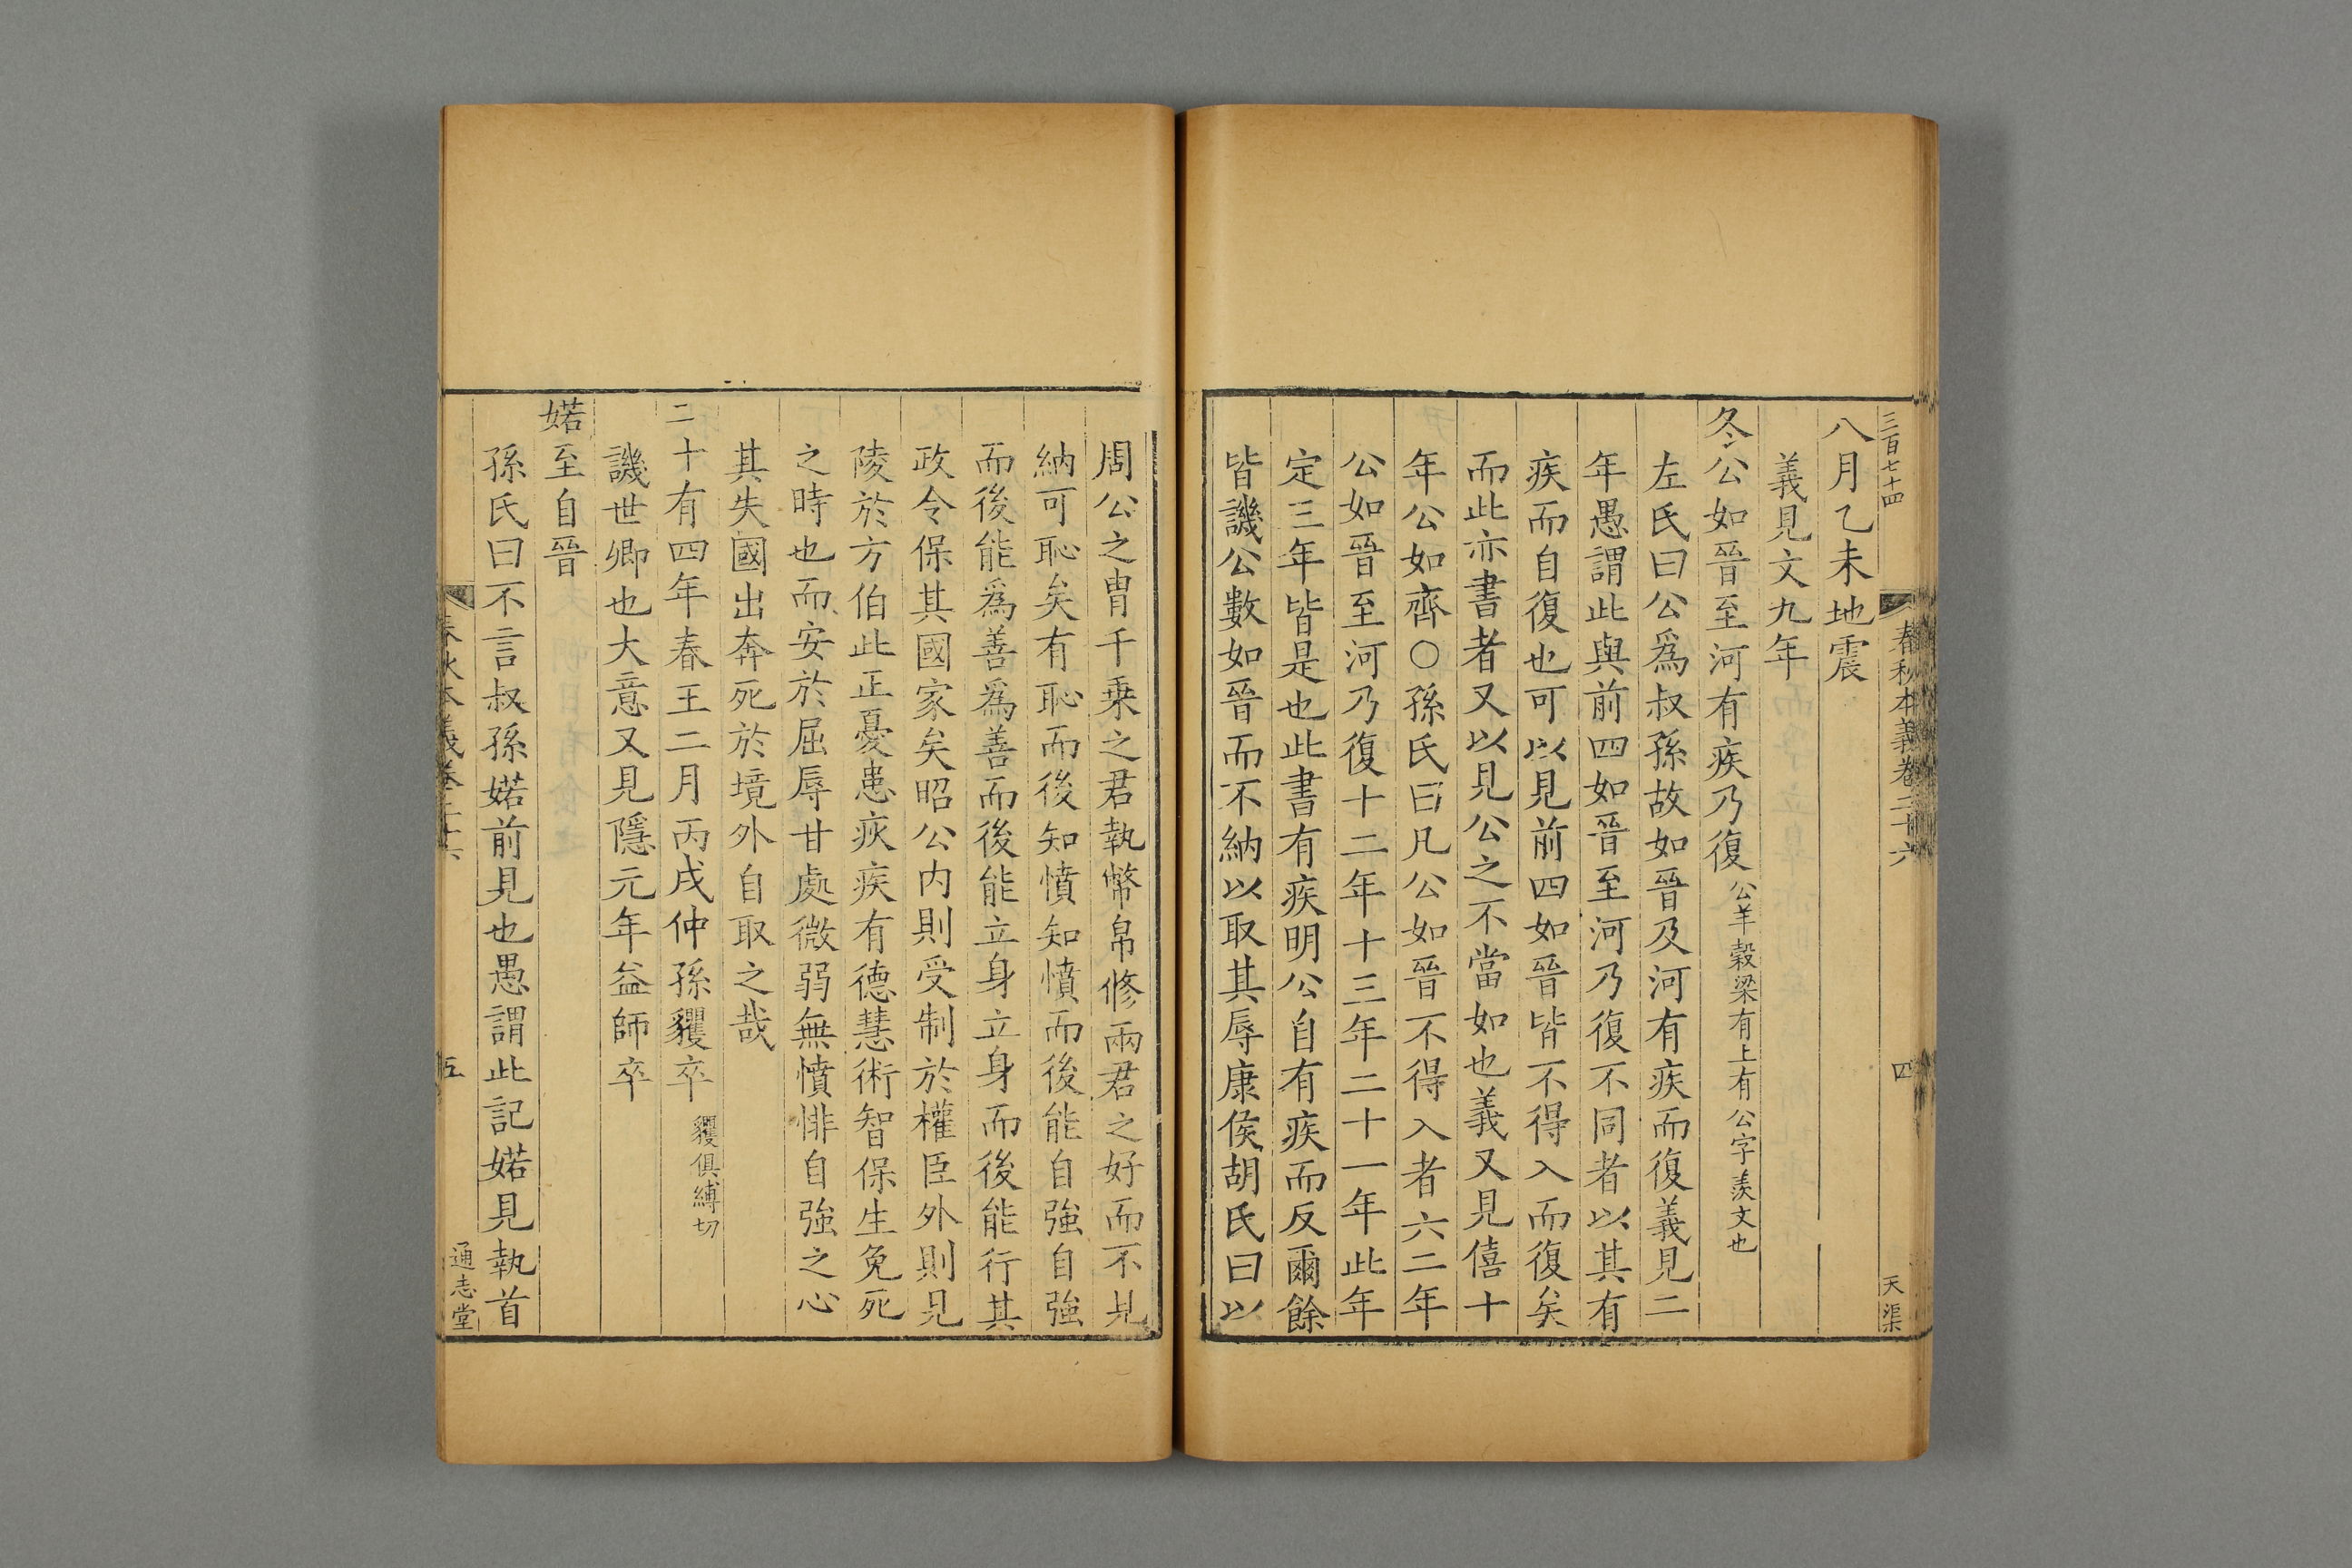 三百七十四
春秋本義卷二十六
四
天渠
八月乙未地震
義見文九年
冬公如晉至河有疾乃復公羊穀梁有上有公字羨文也
左氏曰公爲叔孫故如晉及河有疾而復義見二
年愚謂此與前四如晉至河乃復不同者以其有
疾而自復也可以見前四如晉皆不得入而復矣
而此亦書者又以見公之不當如也義又見僖十
年公如齊○孫氏曰凡公如晉不得入者六二年
公如晉至河乃復十二年十三年二十一年此年
定三年皆是也此書有疾明公自有疾而反爾餘
皆譏公數如晉而不納以取其辱康侯胡氏曰以
周公之胄千乗之君執幣帛修兩君之好而不見
納可恥矣有恥而後知憤知憤而後能自強自強
而後能爲善爲善而後能立身立身而後能行其
政令保其國家矣昭公内則受制於權臣外則見
陵於方伯此正憂患疢疾有德慧術智保生免死
之時也而安於屈辱甘處微弱無憤悱自強之心
其失國出奔死於境外自取之哉
二十有四年春王二月丙戌仲孫貜卒貜俱縛切
譏世卿也大意又見隱元年益師卒
婼至自晉
孫氏曰不言叔孫婼前見也愚謂此記婼見執首
春秋本義卷二十六
五
通志堂